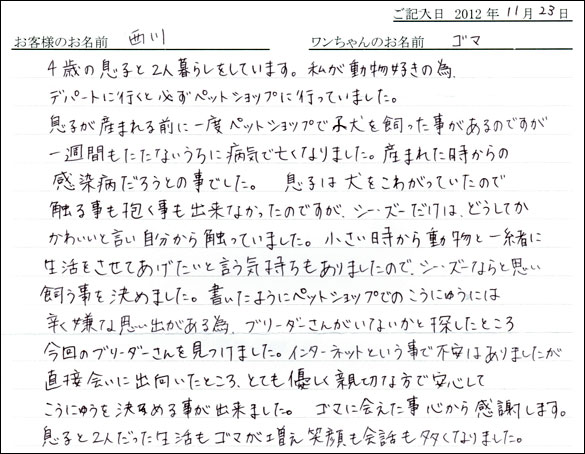 ご記入日 2012年11月23日
お客様のお名前 西川 ワンちゃんのお名前 ゴマ
4歳の息子と2人暮らしをしています。私が動物好きの為、
デパートに行くと必ずペットショップに行っていました。
息子が産まれる前に一度ペットショップで子犬を飼った事があるのですが
一週間もたたないうちに病気で亡くなりました。産まれた時からの
感染病だろうとの事でした。 息子は犬をこわがっていたので
触る事も抱く事も出来なかったのですが、シー・ズーだけは、どうしてか
かわいいと言い自分から触っていました。小さい時から動物と一緒に
生活をさせてあげたいと言う気持ちもありましたので、シーズーならと思い
飼う事を決めました。書いたようにペットショップでのこうにゅうには
辛く嫌な思い出がある為、ブリーダーさんがいないかと探したところ
今回のブリーダーさんを見つけました。インターネットという事で不安はありましたが
直接会いに出向いたところ、とても優しく親切な方で安心して
こうにゅうを決める事が出来ました。 ゴマに会えた事心から感謝します。
息子と2人だった生活もゴマが増え笑顔も会話も多くなりました。